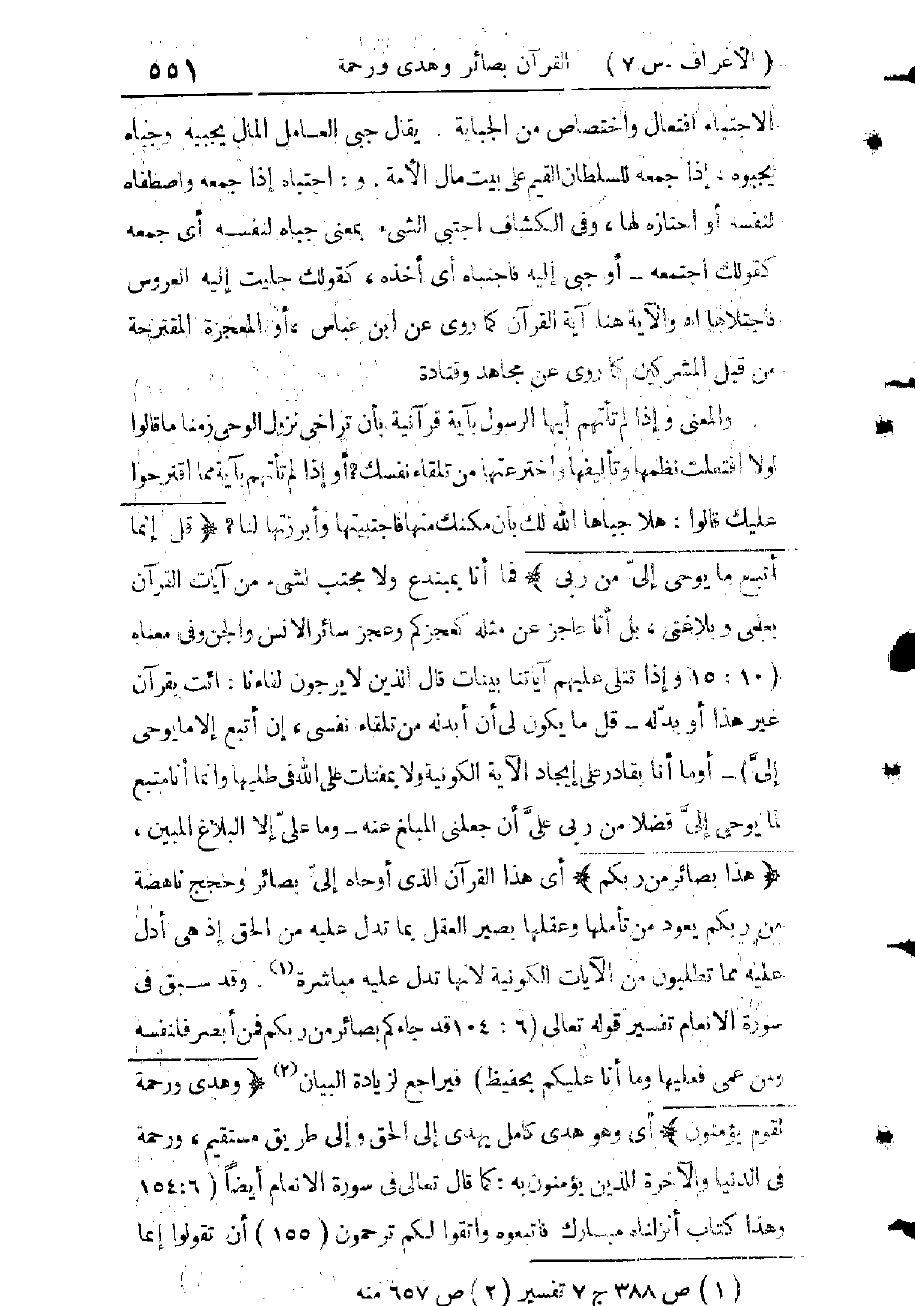 ( الأعراف . س ٧ ) القرآن بصائر وهدى ورحمة ٥٥١
الاجتباء افتعال واختصاص من الجباية . يقال جبى العامل المال يجبيه وجباه
يجبوه ، إذا جمعه للسلطان القيم على بيت مال الأمة . و : اجتباه إذا جمعه واصطفاه
لنفسه أو احتازه لها ، وفى الكشاف اجتبى الشىء بمعنى جباه لنفسه أى جمعه
كقولك اجتمعه – أو جبى إليه فاجتباه أى أخذه ، كقولك جليت إليه العروس
فاجتلاها اه والآية هنا آية القرآن كما روى عن ابن عباس ، أو المعجزة المقترحة
من قبل المشركين كما روى عن مجاهد وقتادة
والمعنى وإذا لم تأتهم أيها الرسول بآية قرآنية بأن تراخى نزول الوحى زمنا ما قالوا
لولا افتعلت نظمها وتأليفها واخترعتها من تلقاء نفسك ؟ أو إذا لم تأتهم بآية مما اقترحوا
عليك قالوا : هلا جباها الله لك بأن مكنك منها فاجتبيتها وأبرزتها لنا ؟ ﴿ قل إنما
أتبع ما يوحى إلىّ من ربى ﴾ فما أنا بمبتدع ولا مجتب لشىء من آيات القرآن
بعلمى وبلاغتى ، بل أنا عاجز عن مثله كعجزكم وعجز سائر الانس والجن وفى معناه
( ١٠ : ١٥ وإذا تتلى عليهم آياتنا بينات قال الذين لا يرجون لقاءنا : ائت بقرآن
غير هذا أو بدّله – قل ما يكون لى أن أبدله من تلقاء نفسى ، إن أتبع إلا ما يوحى
إلىَّ ) – أوما أنا بقادر على إيجاد الآية الكونية ولا بمفتات على الله فى طلبها وانما أنا متبع
لما يوحى إلىَّ فضلا من ربى علىَّ أن جعلنى المبلغ عنه – وما علىّ إلا البلاغ المبين ،
﴿ هذا بصائر من ربكم ﴾ أى هذا القرآن الذى أوحاه إلىّ بصائر وحجج ناهضة
من ربكم يعود من تأملها وعقلها بصير العقل بما تدل عليه من الحق إذ هى أدل
عليه مما تطلبون من الآيات الكونية لانها تدل عليه مباشرة (١) . وقد سبق فى
سورة الانعام تفسير قوله تعالى ( ٦ : ١٠٤ قد جاءكم بصائر من ربكم فمن أبصر فلنفسه
ومن عمى فعليها وما أنا عليكم بحفيظ ) فيراجع لزيادة البيان (٢) ﴿ وهدى ورحمة
لقوم يؤمنون ﴾ أى وهو هدى كامل يهدى إلى الحق وإلى طريق مستقيم ، ورحمة
فى الدنيا والآخرة للذين يؤمنون به : كما قال تعالى فى سورة الانعام أيضاً ( ٦ : ١٥٤
وهذا كتاب أنزلناه مبارك فاتبعوه واتقوا لعلكم ترحمون ( ١٥٥ ) أن تقولوا إنما
( ١ ) ص ٣٨٨ ج ٧ تفسير ( ٢ ) ص ٦٥٧ منه